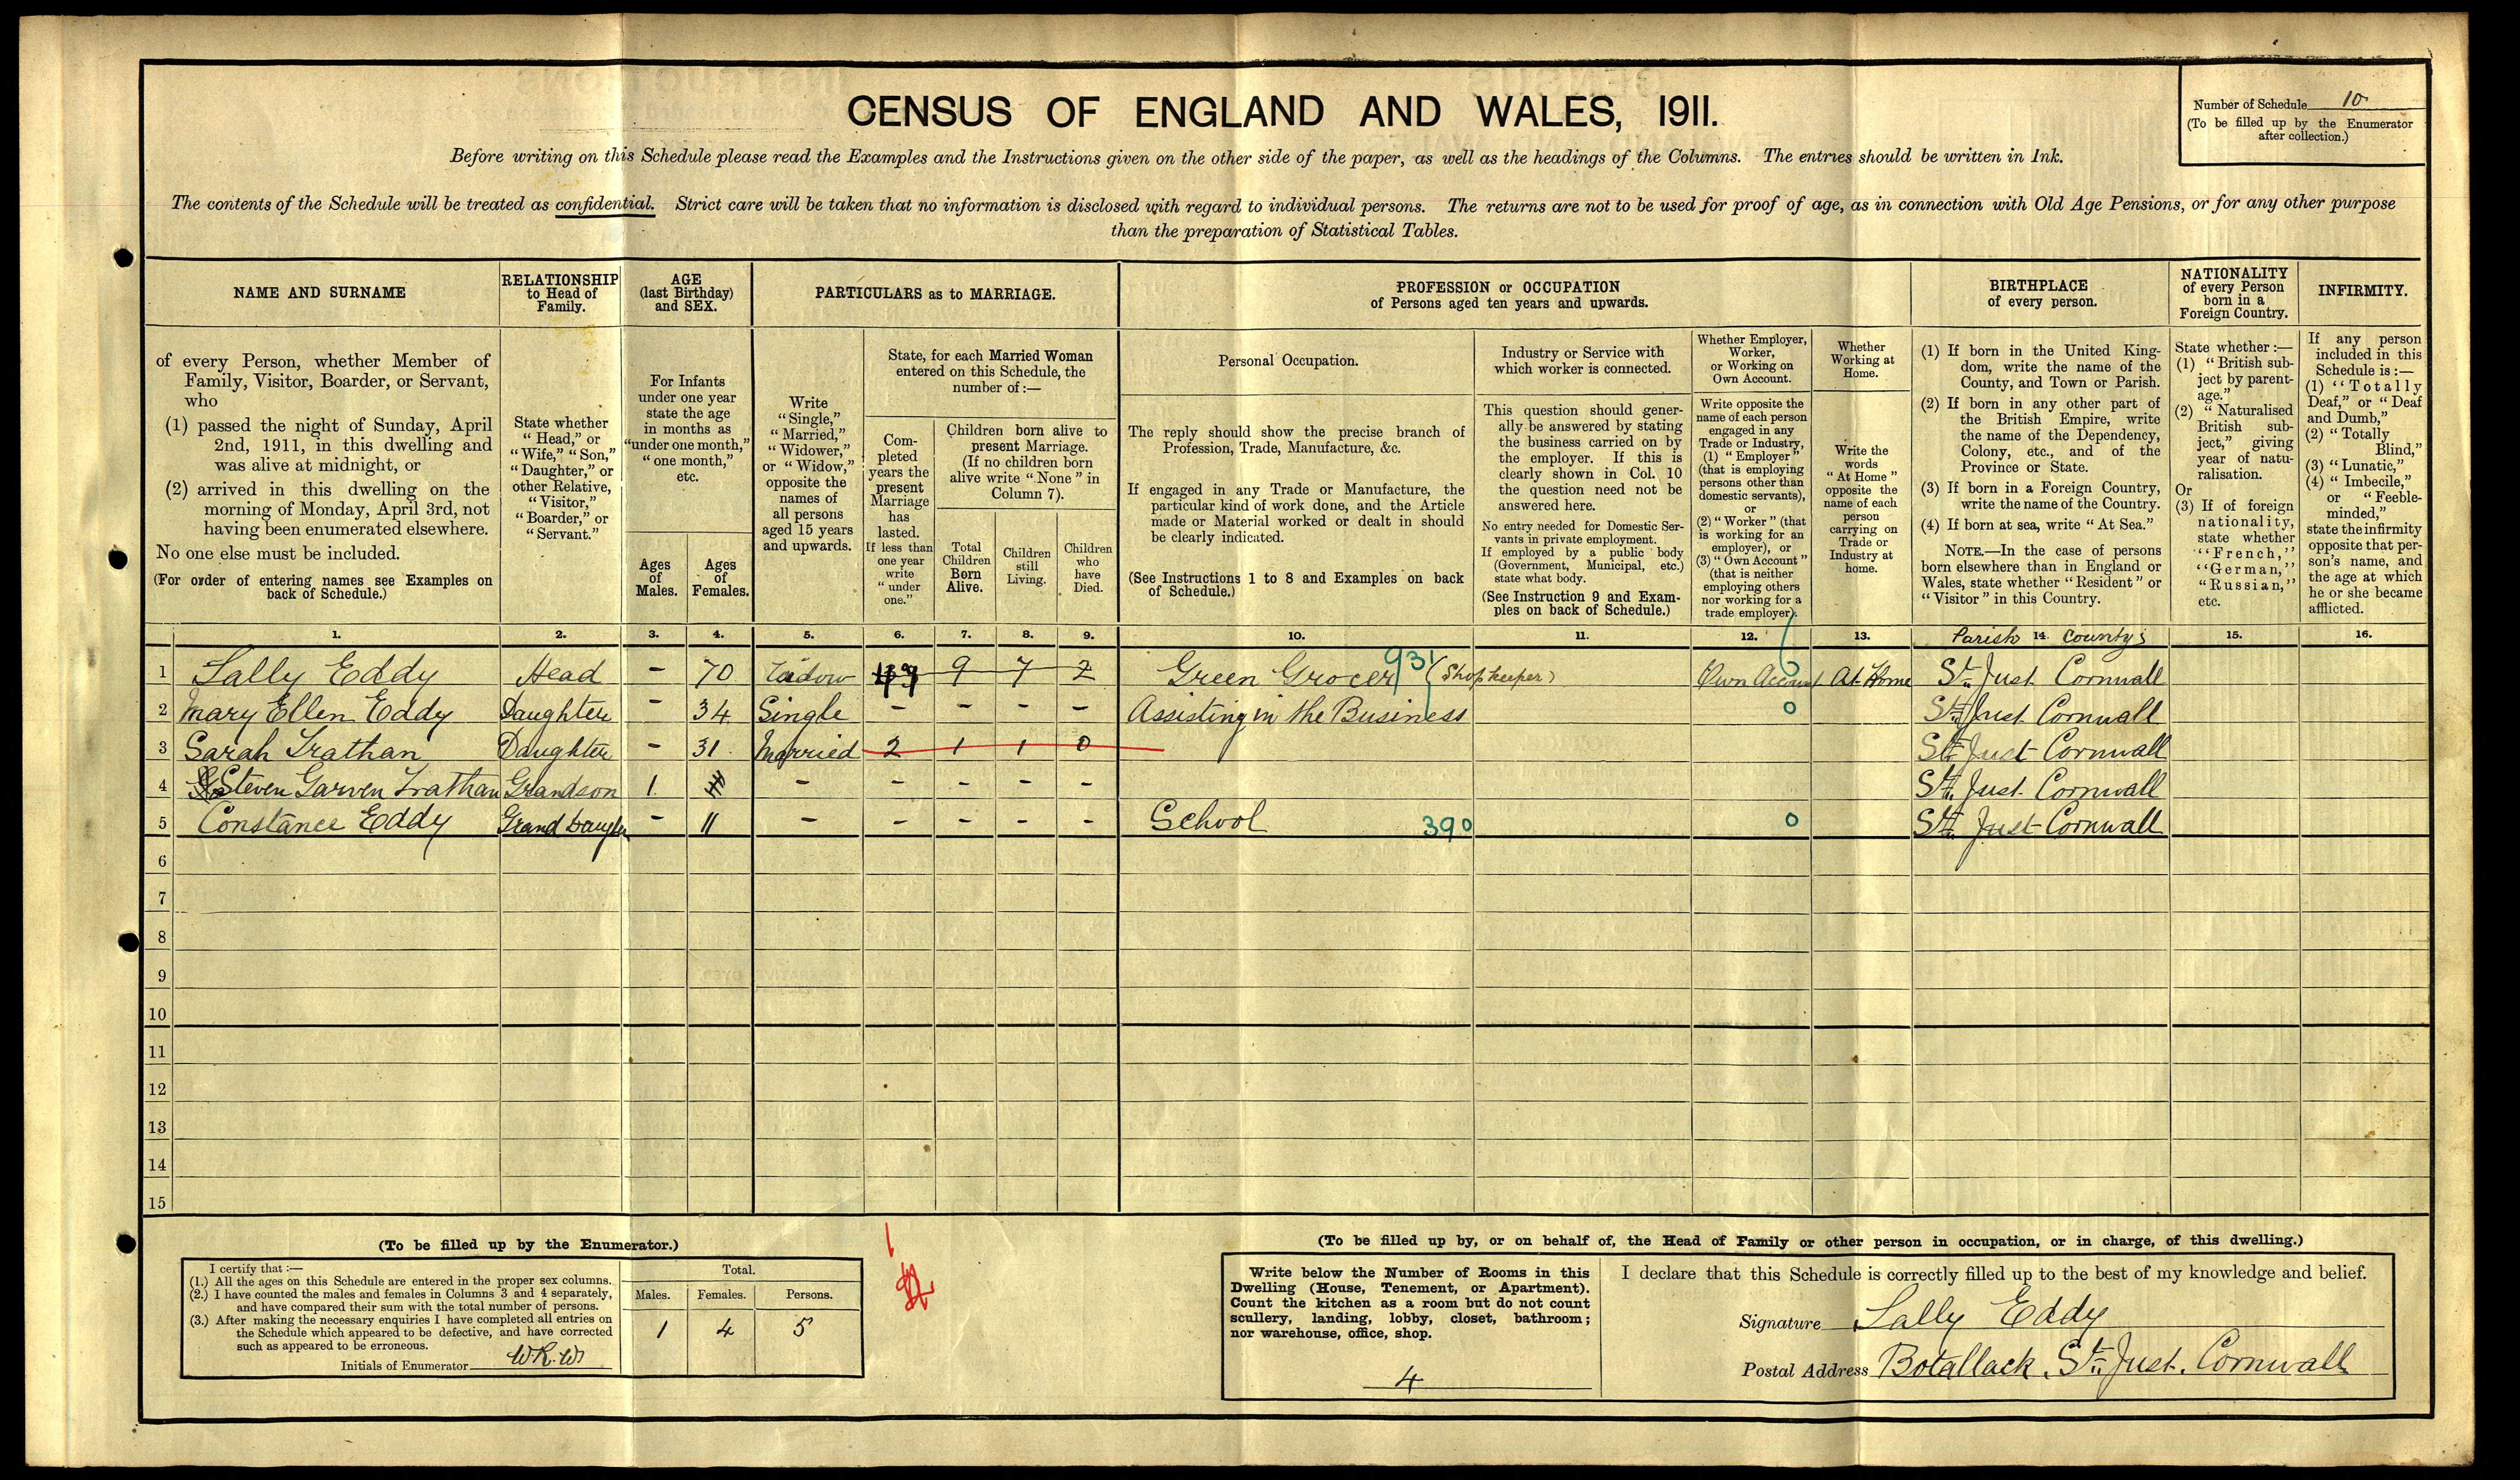 CENSUS OF ENGLAND AND WALES, 1911.
Number of Schedule 10
(To be filled up by the Enumerator
after collection.)
Before writing on this Schedule please read the Examples and the Instructions given on the other side of the paper, as well as the headings of the Columns. The entries should be written in Ink.
The contents of the Schedule will be treated as confidential. Strict care will be taken that no information is disclosed with regard to individual persons. The returns are not to be used for proof of age, as in connection with Old Age Pensions, or for any other purpose
than the preparation of Statistical Tables.
NAME AND SURNAME
of every Person, whether Member of
Family, Visitor, Boarder, or Servant,
who
(1) passed the night of Sunday, April
2nd, 1911, in this dwelling and
was alive at midnight, or
(2) arrived in this dwelling on the
morning of Monday, April 3rd, not
having been enumerated elsewhere.
No one else must be included.
(For order of entering names see Examples on
back of Schedule.)
RELATIONSHIP
to Head of
Family.
State whether
"Head," or
"Wife," "Son,"
"Daughter," or
other Relative,
"Visitor,"
"Boarder," or
"Servant."
AGE
(last Birthday)
and SEX.
For Infants
under one year
state the age
in months as
"under one month,"
"one month,"
etc.
Ages
of
Males.
Ages
of
Females.
PARTICULARS as to MARRIAGE.
Write
"Single,"
"Married,"
"Widower,"
or "Widow,"
opposite the
names of
all persons
aged 15 years
and upwards.
State, for each Married Woman
entered on this Schedule, the
number of:—
Com-
pleted
years the
present
Marriage
has
lasted.
If less than
one year
write
"under
one."
Children born alive to
present Marriage.
(If no children born
alive write "None" in
Column 7).
Total
Children
Born
Alive.
Children
still
Living.
Children
who
have
Died.
PROFESSION or OCCUPATION
of Persons aged ten years and upwards.
Personal Occupation.
The reply should show the precise branch of
Profession, Trade, Manufacture, &c.
If engaged in any Trade or Manufacture, the
particular kind of work done, and the Article
made or Material worked or dealt in should
be clearly indicated.
(See Instructions 1 to 8 and Examples on back
of Schedule.)
Industry or Service with
which worker is connected.
This question should gener-
ally be answered by stating
the business carried on by
the employer. If this is
clearly shown in Col. 10
the question need not be
answered here.
No entry needed for Domestic Ser-
vants in private employment.
If employed by a public body
(Government, Municipal, etc.)
state what body.
(See Instruction 9 and Exam-
ples on back of Schedule.)
Whether Employer,
Worker,
or Working on
Own Account.
Write opposite the
name of each person
engaged in any
Trade or Industry,
(1) "Employer"
(that is employing
persons other than
domestic servants),
or
(2) "Worker" (that
is working for an
employer), or
(3) "Own Account"
(that is neither
employing others
nor working for a
trade employer).
Whether
Working at
Home.
Write the
words
"At Home"
opposite the
name of each
person
carrying on
Trade or
Industry at
home.
BIRTHPLACE
of every person.
(1) If born in the United King-
dom, write the name of the
County, and Town or Parish.
(2) If born in any other part of
the British Empire, write
the name of the Dependency,
Colony, etc., and of the
Province or State.
(3) If born in a Foreign Country,
write the name of the Country.
(4) If born at sea, write "At Sea."
NOTE.—In the case of persons
born elsewhere than in England or
Wales, state whether "Resident" or
"Visitor" in this Country.
NATIONALITY
of every Person
born in a
Foreign Country.
State whether:—
(1) "British sub-
ject by parent-
age."
(2) "Naturalised
British sub-
ject," giving
year of natu-
ralisation.
Or
(3) If of foreign
nationality,
state whether
"French,"
"German,"
"Russian,"
etc.
INFIRMITY.
If any person
included in this
Schedule is:—
(1) "Totally
Deaf," or "Deaf
and Dumb,"
(2) "Totally
Blind,"
(3) "Lunatic,"
(4) "Imbecile,"
or "Feeble-
minded,"
state the infirmity
opposite that per-
son's name, and
the age at which
he or she became
afflicted.
1. 2. 3. 4. 5. 6. 7. 8. 9. 10. 11. 12. 13. Parish 14. County 15. 16.
1 Sally Eddy Head – 70 Widow 9 7 2 Green Grocer 931 (Shopkeeper) Own Account 6 At Home St. Just Cornwall
2 Mary Ellen Eddy Daughter – 34 Single – – – – Assisting in the Business 0 St. Just Cornwall
3 Sarah Trathan Daughter – 31 Married 2 1 1 0 St. Just Cornwall
4 Steven Garven Trathan Grandson 1 – – – – – St. Just Cornwall
5 Constance Eddy Grand Daughter – 11 – – – – – School 390 0 St. Just Cornwall
6
7
8
9
10
11
12
13
14
15
(To be filled up by the Enumerator.)
I certify that:—
(1.) All the ages on this Schedule are entered in the proper sex columns.
(2.) I have counted the males and females in Columns 3 and 4 separately,
and have compared their sum with the total number of persons.
(3.) After making the necessary enquiries I have completed all entries on
the Schedule which appeared to be defective, and have corrected
such as appeared to be erroneous.
Initials of Enumerator W.R.W.
Total.
Males. Females. Persons.
1 4 5
1
(To be filled up by, or on behalf of, the Head of Family or other person in occupation, or in charge, of this dwelling.)
Write below the Number of Rooms in this
Dwelling (House, Tenement, or Apartment).
Count the kitchen as a room but do not count
scullery, landing, lobby, closet, bathroom;
nor warehouse, office, shop.
4
I declare that this Schedule is correctly filled up to the best of my knowledge and belief.
Signature Sally Eddy
Postal Address Botallack. St. Just. Cornwall